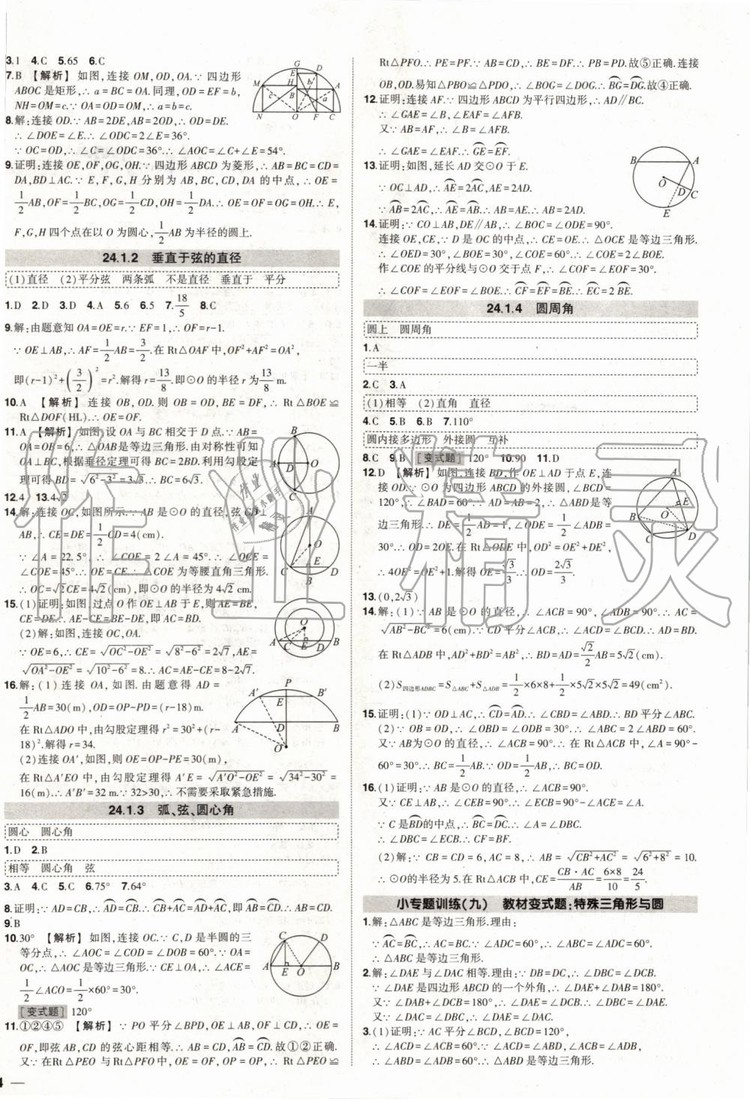 3.1 4.C 5.65 6.C
7.B 【解析】 如图,连接 OM,OD,OA.∵ 四边形
ABOC 是矩形,∴ a = BC = OA.同理,OD = EF = b,
NH=OM=c.∵ OA=OD=OM,∴ a=b=c.
8.解:连接 OD.∵ AB=2DE,AB=2OD,∴ OD=DE.
∴ ∠DOE=∠E.∴ ∠ODC=2∠E=36°.
∵ OC=OD,∴ ∠C=∠ODC=36°.∴ ∠AOC=∠C+∠E=54°.
9.证明:连接 OE,OF,OG,OH.∵ 四边形 ABCD 为菱形,∴ AB=BC=CD=
DA,BD⊥AC.∵ E,F,G,H 分别为 AB,BC,CD,DA 的中点,∴ OE=
1/2AB,OF=1/2BC,OG=1/2CD,OH=1/2DA.∴ OE=OF=OG=OH.∴ E,
F,G,H 四个点在以 O 为圆心,1/2AB 为半径的圆上.
24.1.2 垂直于弦的直径
(1)直径 (2)平分弦 两条弧 不是直径 垂直于 平分
1.D 2.B 3.D 4.A 5.6 6.5 7.18/5 8.C
9.解:由题意知 OA=OE=r.∵ EF=1,∴ OF=r-1.
∵ OE⊥AB,∴ AF=1/2AB=3/2.在 Rt△OAF 中,OF²+AF²=OA²,
即(r-1)²+(3/2)²=r².解得 r=13/8.即⊙O 的半径 r 为13/8 m.
10.A 【解析】 连接 OB,OD.则 OB = OD,BE = DF,∴ Rt△BOE ≌
Rt△DOF(HL).∴ OE=OF.
11.A 【解析】如图,设 OA 与 BC 相交于 D 点.∵ AB=
OA=OH=6,∴ △OAB是等边三角形.由对称性可知
OA⊥BC.根据垂径定理可得 BC=2BD.利用勾股定
12.4 13.4√3
14.解:连接 OC,如图所示.∵ AB 是⊙O 的直径,弦 CD⊥
AB,∴ CE=DE=1/2CD=4(cm).
∵ ∠A = 22.5°,∴ ∠COE = 2∠A = 45°.∴ ∠OCE =
∠COE=45°.∴ OE=CE.∴ △COE 为等腰直角三角形.
∴ OC=√2CE=4√2(cm),即⊙O 的半径为 4√2 cm.
15.(1)证明:如图,过点 O 作 OE⊥AB 于 E,则 AE=BE,
CE=DE.∴ AE-CE=BE-DE,即 AC=BD.
(2)解:如图,连接 OC,OA.
∵ OE=6,∴ CE=√(OC²-OE²)=√(8²-6²)=2√7,AE=
√(OA²-OE²)=√(10²-6²)=8.∴ AC=AE-CE=8-2√7.
16.解:(1)连接 OA,如图.由题意得 AD=
1/2AB=30(m),OD=OA-PD=(r-18)m.
在 Rt△ADO 中,由勾股定理得 r²=30²+(r-
18)².解得 r=34.
(2)连接 OA′,如图.OE=OP-PE=30(m),
在 Rt△A′EO 中,由勾股定理得 A′E=√(A′O²-OE²)=√(34²-30²)=
16(m).∴ A′B′=32 m.∵ 32>30,∴ 不需要采取紧急措施.
24.1.3 弧、弦、圆心角
圆心 圆心角
1.D 2.B
相等 圆心角 弦
3.A 4.C 5.C 6.75° 7.64°
8.证明:∵ AD=CB,∴ AD=CB.∴ CB+AC=AD+AC,即 AB=CD.∴ AB=CD.
9.B
10.30° 【解析】如图,连接 OC.∵ C,D 是半圆的三
等分点,∴ ∠AOC=∠COD=∠DOB=60°.∵ OA=
OC,∴ △AOC 是等边三角形.∵ CE⊥OA,∴ ∠ACE=
1/2∠ACO=1/2×60°=30°.
[变式题] 120°
11.①②④⑤ 【解析】 ∵ PO 平分∠BPD,OE⊥AB,OF⊥CD,∴ OE=
OF,即弦 AB,CD 的弦心距相等.∴ AB=CD,AB=CD.故①②正确.
又∵ 在 Rt△PEO 与 Rt△PFO 中,OE = OF,OP = OP,∴ Rt△PEO ≌
Rt△PFO.∴ PE=PF.∵ AB=CD,∴ BE=DF.∴ PB=PD.故④正确.连接
OB,OD.易知△PBO≌△PDO,∴ ∠BOG=∠DOG.∴ BG=DG.故⑤正确.
12.证明:连接 AF.∵ 四边形 ABCD 为平行四边形,∴ AD∥BC.
∴ ∠GAE=∠B,∠EAF=∠AFB.
又∵ AB=AF,∴ ∠B=∠AFB.
∴ ∠GAE=∠EAF.∴ GE=EF.
13.证明:如图,延长 AD 交⊙O 于 E.
∵ OC⊥AD,∴ AE=2AC,AE=2AD.
∵ AB=2AC,∴ AE=AB.∴ AB=AE.∴ AB=2AD.
14.证明:∵ CO⊥AB,DE∥AB,∴ ∠BOC=∠ODE=90°.
连接 OE,CE,∵ D 是 OC 的中点,∴ OE=CE.∴ △OCE 是等边三角形.
∴ ∠OED=30°,∴ ∠BOE=30°,∴ ∠COE=60°=2∠BOE.
作∠COE 的平分线与⊙O 交于点 F,∴ ∠COF=∠EOF=30°.
∴ ∠COF=∠EOF=∠BOE.∴ CF=EF=BE.∴ EC=2BE.
24.1.4 圆周角
圆上 圆周角
1.A
一半
2.C 3.A
(1)相等 (2)直角 直径
4.C 5.B 6.B 7.110°
圆内接多边形 外接圆 互补
8.C 9.B [变式题] 120° 10.90 11.D
12.D 【解析】 如图,连接 BD,作 OE⊥AD 于点 E,连
接 OD.∵ ⊙O 为四边形 ABCD 的外接圆,∠BCD=
120°,∴ ∠BAD=60°.∵ AD=AB=2,∴ △ABD是等
边三角形.∴ DE=1/2AD=1,∠ODE=1/2∠ADB=
30°.∴ OD=2OE.在 Rt△ODE 中,OD²=OE²+DE²,
∴ 4OE²=OE²+1.解得 OE=√3/3.∴ OD=2√3/3.
13.(0,2√3)
14.解:(1)∵ AB 是⊙O 的直径,∴ ∠ACB=90°,∠ADB=90°.∴ AC=
√(AB²-BC²)=6(cm).∵ CD 平分∠ACB,∴ ∠ACD=∠BCD.∴ AD=BD.
在 Rt△ABD 中,AD²+BD²=AB²,∴ BD=AD=√2/2AB=5√2(cm).
(2)S四边形ADBC=S△ABC+S△ADB=1/2×6×8+1/2×5√2×5√2=49(cm²).
15.证明:(1)∵ OD⊥AC,∴ CD=AD.∴ ∠CBD=∠ABD.∴ BD 平分∠ABC.
(2)∵ OB=OD,∴ ∠OBD=∠ODB=30°.∴ ∠ABC=2∠ABD=60°.
又∵ AB 为⊙O 的直径,∴ ∠ACB=90°.∴ 在 Rt△ACB 中,∠A=90°-
60°=30°.∴ BC=1/2AB.∵ OD=1/2AB,∴ BC=OD.
16.(1)证明:∵ AB 是⊙O 的直径,∴ ∠ACB=90°.
又∵ CE⊥AB,∴ ∠CEB=90°.∴ ∠BCE=90°-∠ABC=∠A.
∵ C 是BD的中点,∴ BC=DC.∴ ∠A=∠DBC.
∴ ∠BCE=∠DBC.∴ CF=BF.
(2)解:∵ CB=CD=6,AC=8,∴ AB=√(CB²+AC²)=√(6²+8²)=10.
∴ ⊙O的半径为 5.在 Rt△ABC 中,CE=CB·AC/AB=6×8/10=24/5.
小专题训练(九) 教材变式题:特殊三角形与圆
1.解:△ABC 是等边三角形.理由:
∵ AC=BC,∴ AC=BC.∵ ∠ADC=60°,∴ ∠ABC=∠ADC=60°.
∴ △ABC 是等边三角形.
2.解:∠DAE 与∠DAC 相等.理由:∵ DB=DC,∴ ∠DBC=∠DCB.
∵ ∠DAE 是四边形 ABCD 的一个外角,∴ ∠DAE+∠DAB=180°.
又∵ ∠DAB+∠DCB=180°,∴ ∠DAE=∠DCB.∴ ∠DBC=∠DAE.
又∵ ∠DAC=∠DBC,∴ ∠DAE=∠DAC.
3.(1)证明:∵ AC 平分∠BCD,∠BCD=120°,∴ ∠ACD=∠ACB=60°.
∵ ∠ACD=∠ABD,∠ACB=∠ADB,∴ ∠ABD=60°,∠ADB=60°.
∴ ∠ABD=∠ADB=60°.∴ △ABD 是等边三角形.